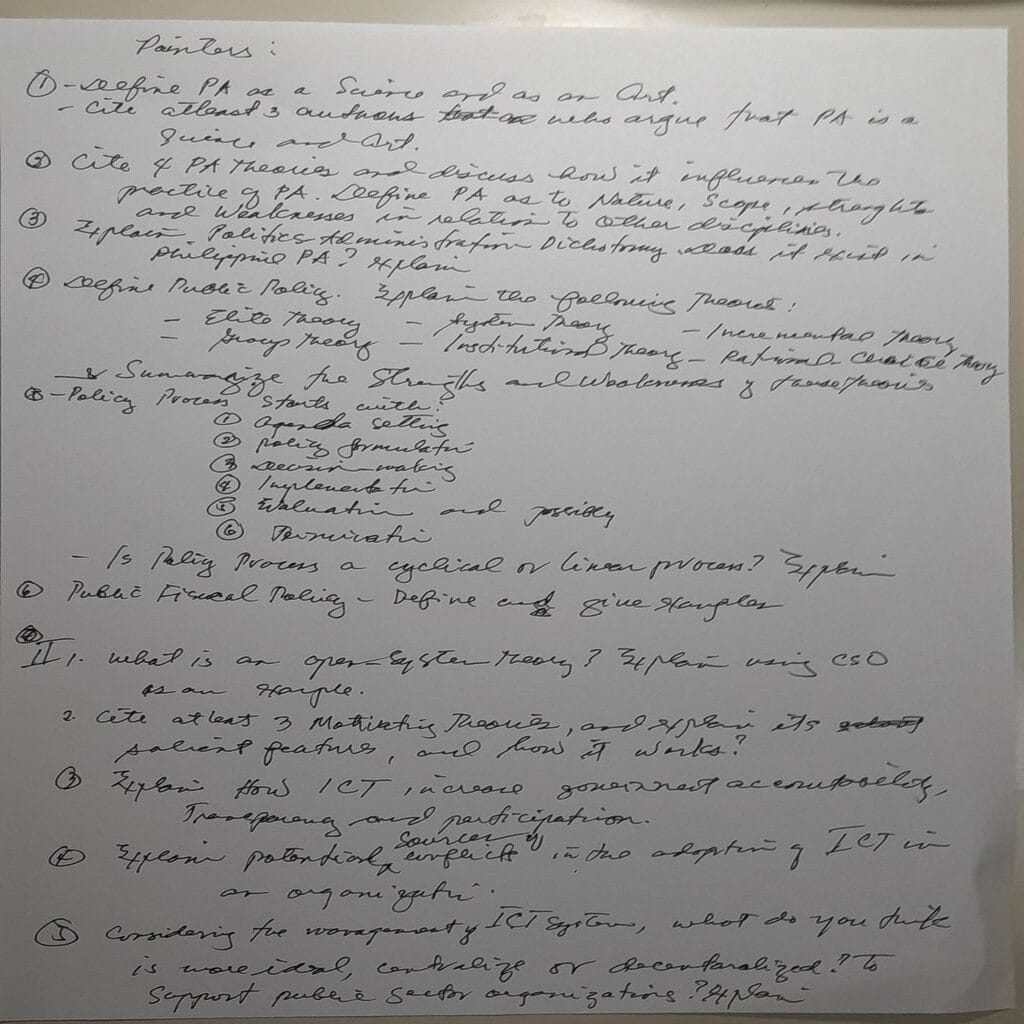 Pointers :
① - Define PA as a Science and as an Art.
- Cite atleast 3 authors who argue that PA is a
Science and Art.
② Cite 4 PA Theories and discuss how it influences the
practice of PA. Define PA as to Nature, Scope, strenghts
and Weaknesses in relation to other disciplines.
③ Explain Politics Administration Dichotomy does it exist in
Philippine PA? explain
④ Define Public Policy. Explain the following Theories :
- Elite Theory - System Theory - Incremental Theory
- Group Theory - Institutional Theory - Rational Choice Theory
Summarize the Strengths and Weaknesses of these theories
⑤ - Policy Process starts with:
① agenda setting
② policy formulation
③ Decision-making
④ Implementation
⑤ Evaluation and possibly
⑥ Termination
- Is Policy Process a cyclical or linear process? Explain
⑥ Public Fiscal Policy - Define and give examples
II 1. what is an open-System theory? Explain using CSO
as an example.
2. Cite atleast 3 Motivating Theories, and explain its
salient features, and how it works?
③ Explain How ICT increase government accountability,
Transparency and participation.
④ Explain potential sources of conflicts in the adoption of ICT in
an organization.
⑤ Considering the management of ICT systems, what do you think
is more ideal, centralize or decentaralized? To
Support public sector organizations? Explain